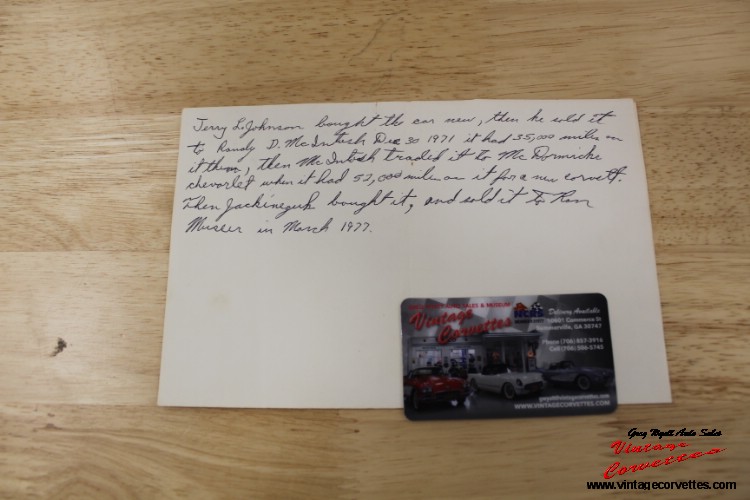 Jerry L Johnson bought the car new, then he sold it
to Randy D. McIntosh Dec 30 1971 it had 35,000 miles on
it then, then McIntosh traded it to McCormicke
chevorlet when it had 52,000 miles on it for a new corvett.
Then bought it, and sold it To Ron
in March 1977.
SALES & MUSEUM
Vintage
Corvettes
Delivery Available
Commerce
Summerville, GA 30747
Phone (706) 857-2916
Cell (706) 506-5745
WWW.VINTAGECORVETTES.COM
Greg Wyatt Auto Sales
Vintage
Corvettes
www.vintagecorvettes.com